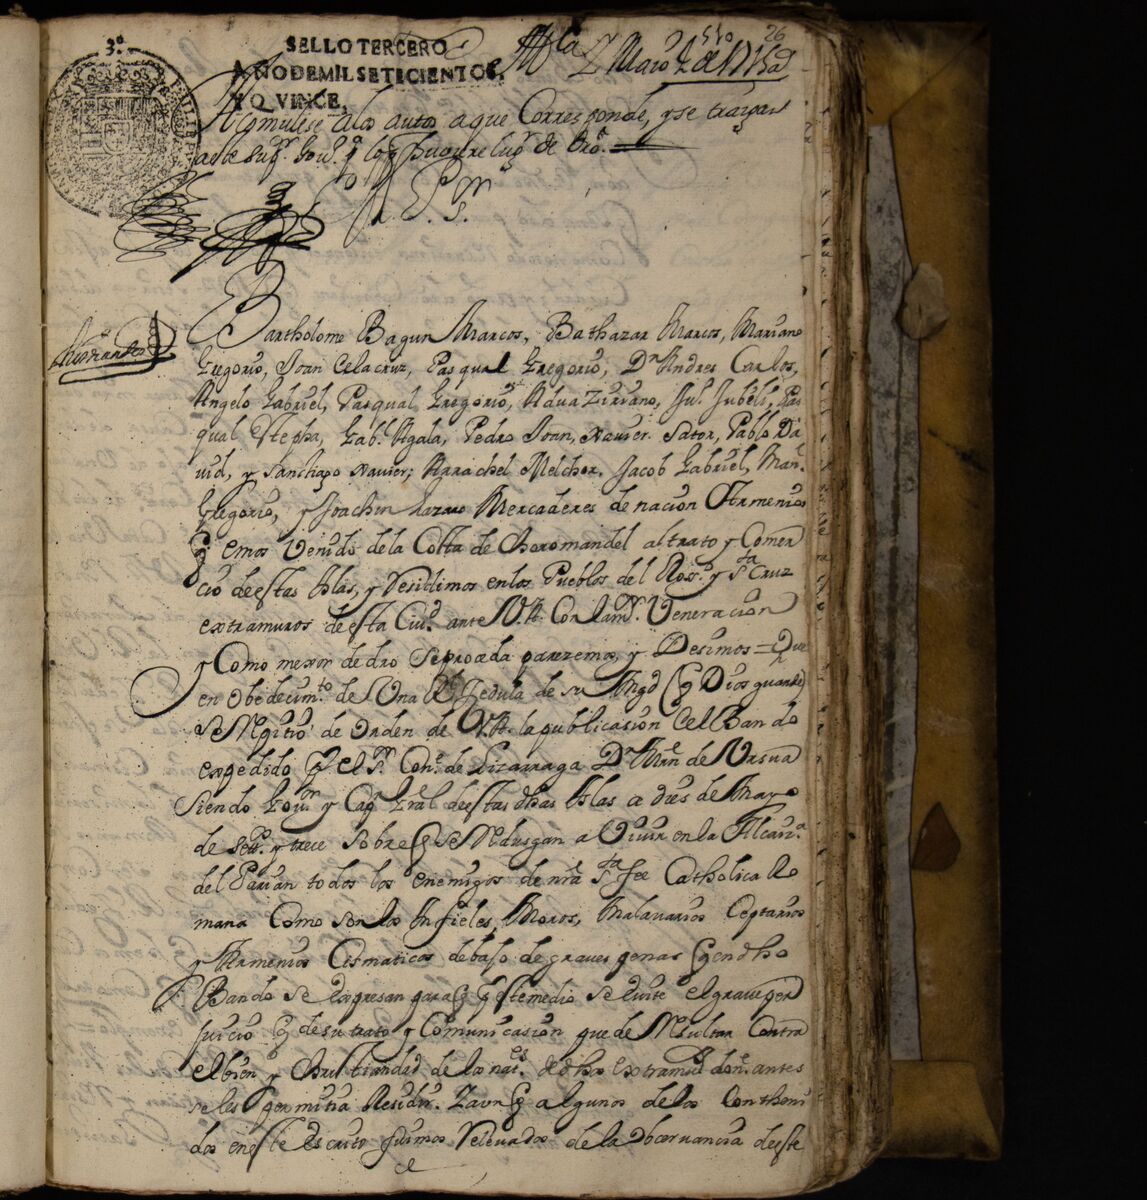 3º
SELLO TERCERO
AÑO DE MIL SETECIENTOS
Y QVINCE.
Mla y Março 2 de 1715
510
26
Acomulese a los autos a que Corresponde, y se traigan
a este Supr. Gou.
Bartholome Bagun Marcos, Bathazar Marcos, Mariano
Gregorio, Joan Celacruz, Pasqual Gregorio, Dn Andres Carlos,
Angelo Gabriel, Pasqual Gregorio, Adua Zirvano, Jul. Jubeli, Pas
qual Stepha, Gabl. Agala, Pedro Joan, Xauier Sator, Pablo Da
uid, y Santhiago Xauier; Arrachel Melchor, Jacob Gabriel, Manl.
Gregorio, y Joachin Lazaro Mercaderes de nacion Armenios
q emos Venido de la Costa de Choromandel al trato y Comer
cio de estas Islas, y Residimos en los Pueblos del Rosr. y Sta Cruz
extramuros de esta Ciud. ante V.A. Con la mr. Veneracion
y Como mexor de dro Se proceda parezemos, y Desimos = Que
en Obedecimto de Una Rl Zedula de su Magd (q Dios guarde)
se Repitio de Orden de V.A. la publicasion del Bando
expedido pr el Sr. Conde de Lizarraga Dn Marn de Vrsua
Siendo Gour. y Capn Gral de estas dhas Islas a dies de Mayo
de setos. y trece Sobre q se Redusgan a Viuir en la Alcaria
del Parian todos los enemigos de nra Sta fee Catholica Ro
mana Como son los Infieles, Moros, Malauarios Ceptarios
y Armenios Cismaticos debaxo de graues penas q en dho
Bando se expresan para q pr este medio se euite el graue per
juicio q de su trato y Comunicasion puede Resultar Contra
el bien y Christiandad de los nats. de dhos extramuros donde antes
se les permitia Residir. Zaun q a algunos de los Contheni
dos en este Escrito fuimos Releuados de la obseruancia de este